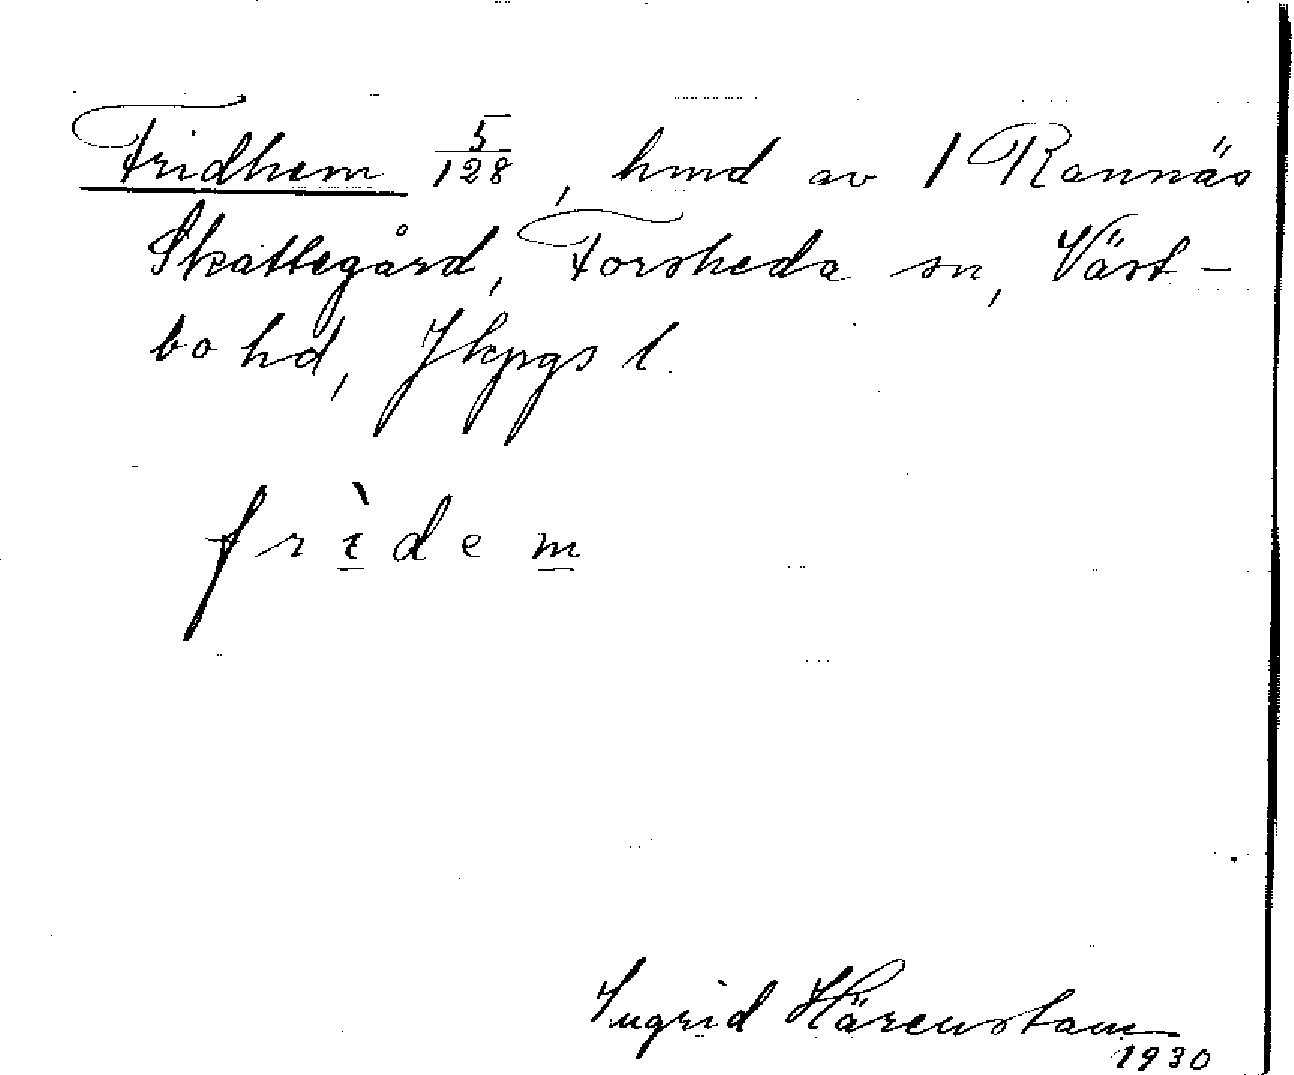 Fridhem 5/128, hmd av 1 Rannäs
Skattegård, Forsheda sn, Väst-
bo hd, Jkpgs l.
frìdem
Ingrid Härenstam
1930